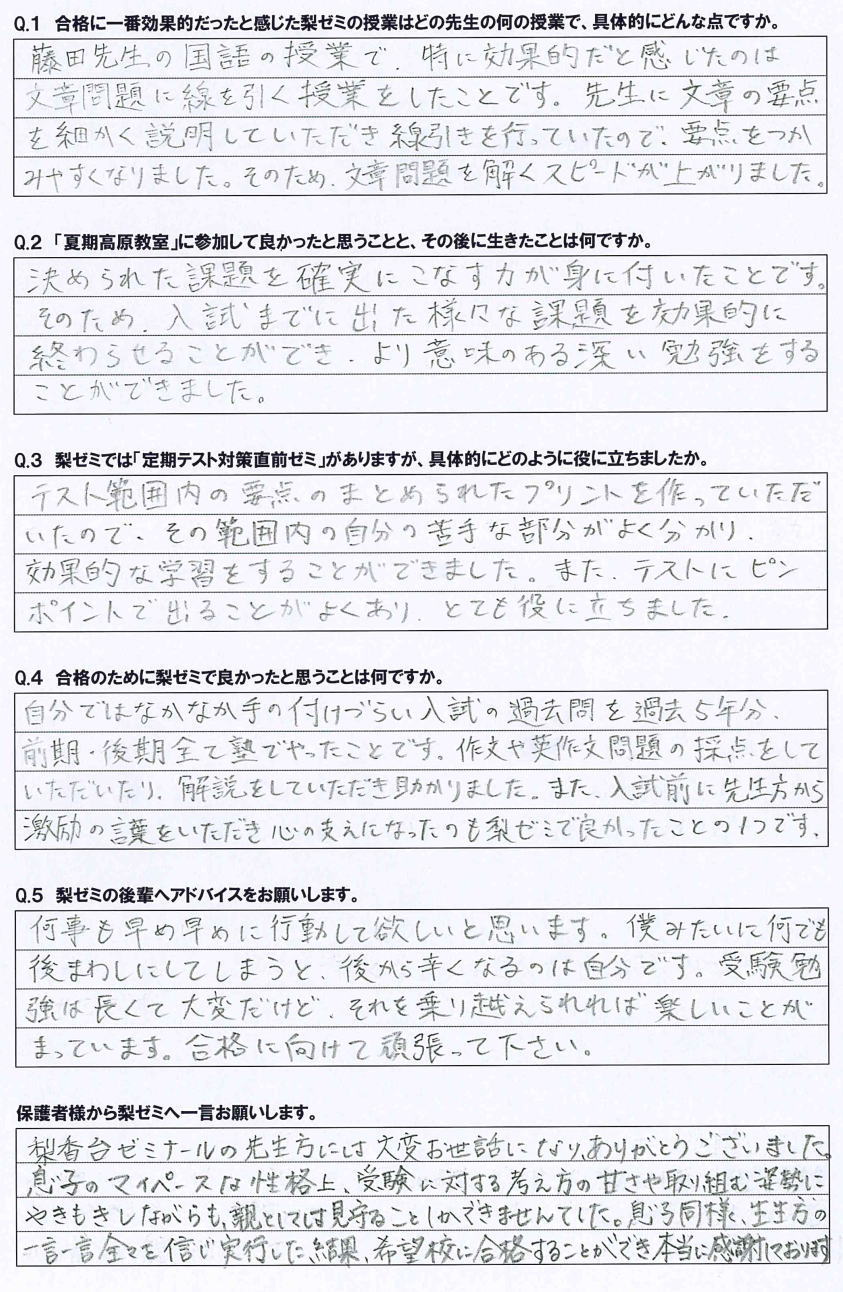 Q.1 合格に一番効果的だったと感じた梨ゼミの授業はどの先生の何の授業で、具体的にどんな点ですか。
藤田先生の国語の授業で、特に効果的だと感じたのは
文章問題に線を引く授業をしたことです。先生に文章の要点
を細かく説明していただき線引きを行っていたので、要点をつか
みやすくなりました。そのため、文章問題を解くスピードが上がりました。
Q.2 「夏期高原教室」に参加して良かったと思うことと、その後に生きたことは何ですか。
決められた課題を確実にこなす力が身に付いたことです。
そのため、入試までに出た様々な課題を効果的に
終わらせることができ、より意味のある深い勉強をする
ことができました。
Q.3 梨ゼミでは「定期テスト対策直前ゼミ」がありますが、具体的にどのように役に立ちましたか。
テスト範囲内の要点のまとめられたプリントを作っていただ
いたので、その範囲内の自分の苦手な部分がよく分かり、
効果的な学習をすることができました。また、テストにピン
ポイントで出ることがよくあり、とても役に立ちました。
Q.4 合格のために梨ゼミで良かったと思うことは何ですか。
自分ではなかなか手の付けづらい入試の過去問を過去5年分、
前期・後期全て塾でやったことです。作文や英作文問題の採点をして
いただいたり、解説をしていただき助かりました。また、入試前に先生方から
激励の言葉をいただき心の支えになったのも梨ゼミで良かったことの1つです、
Q.5 梨ゼミの後輩へアドバイスをお願いします。
何事も早め早めに行動して欲しいと思います。僕みたいに何でも
後まわしにしてしまうと、後から辛くなるのは自分です。受験勉
強は長くて大変だけど、それを乗り越えられれば楽しいことが
まっています。合格に向けて頑張って下さい。
保護者様から梨ゼミへ一言お願いします。
梨香台ゼミナールの先生方には大変お世話になり、ありがとうございました。
息子のマイペースな性格上、受験に対する考え方の甘さや取り組む姿勢に
やきもきしながらも、親としては見守ることしかできませんでした。息子同様、先生方の
一言一言全てを信じ実行した結果、希望校に合格することができ本当に感謝しております